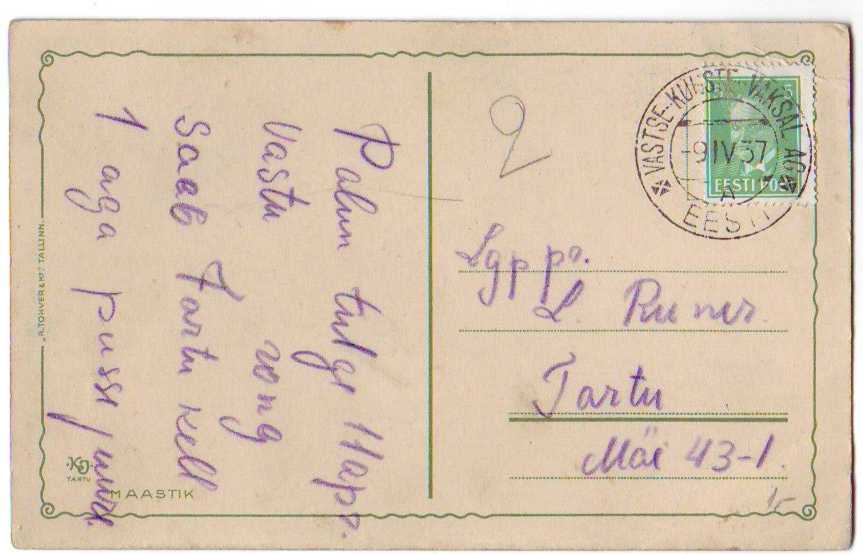 Palun tulge 11 apr.
Vastu rong
saab Tartu kell
1 aga
2
VASTSE-KUUSTE VAKSAL AG.
-9 IV 37
A
EESTI
EESTI POST
5
Lgp pr.
L. Runer.
Tartu
Mäe 43-1.
"R. TOHVER & Ko." TALLINN.
KJ
TARTU
MAASTIK